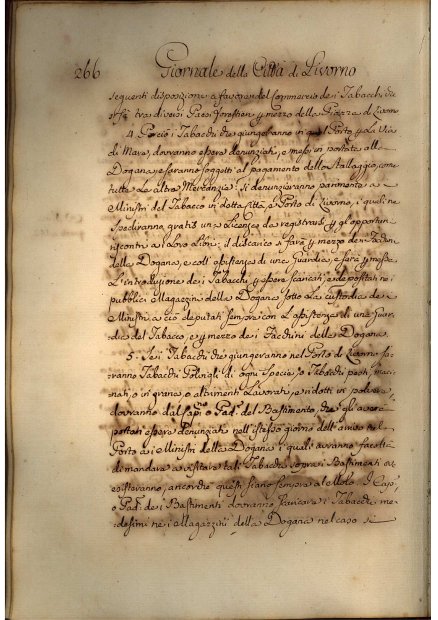 266 Giornale della Città di Livorno
seguenti disposizione a favore del Commercio dei Tabacchi, che
si fà tra diversi Paesi forestieri p mezzo della Piazza di Livorno
4. Perciò i Tabacchi che giungeranno in quel Porto p La Via
di Mare, dovranno essere denunziati, e messi in portata alla
Dogana, e saranno soggetti al pagamento dello stallaggio, come
tutte Le altre Mercanzie. Si denunzieranno parimente a
Ministri del Tabacco in detta Città, e Porto di Livorno, i quali ne
spediranno gratis una Licenza da registrarsi p gli opportuni
riscontri a i Loro Libri: il discarico si farà p mezzo de Facchini
della Dogana, e coll assistenza di una Guardia, e sarà p messa
L'introduzione de i Tabacchi p essere scaricati, e depositati ne
pubblici Magazzini della Dogana sotto La custodia de
Ministri a ciò deputati sempre con L'assistenza di una Guar-
dia del Tabacco, e p mezzo de i Facchini della Dogana
5. Se i Tabacchi che giungeranno nel Porto di Livorno sa-
ranno Tabacchi di ogni Specie, o Tabacchi
o in grana, o altrimenti Lavorati, e ridotti in polvere
dovranno dal Cap.o o Pad.e del Bastimento, che gli averà
portati essere denunziati nell'istesso giorno dell'arrivo nel
Porto a i Ministri della Dogana i quali avranno facoltà
di mandare a visitare tali Tabacchi sopra i Bastimenti ove
esisteranno, ancorche questi siano sempre al Molo. I Cap.i
o Pad.i de i Bastimenti dovranno scaricare i Tabacchi me-
desimi ne i Magazzini della Dogana nel caso se